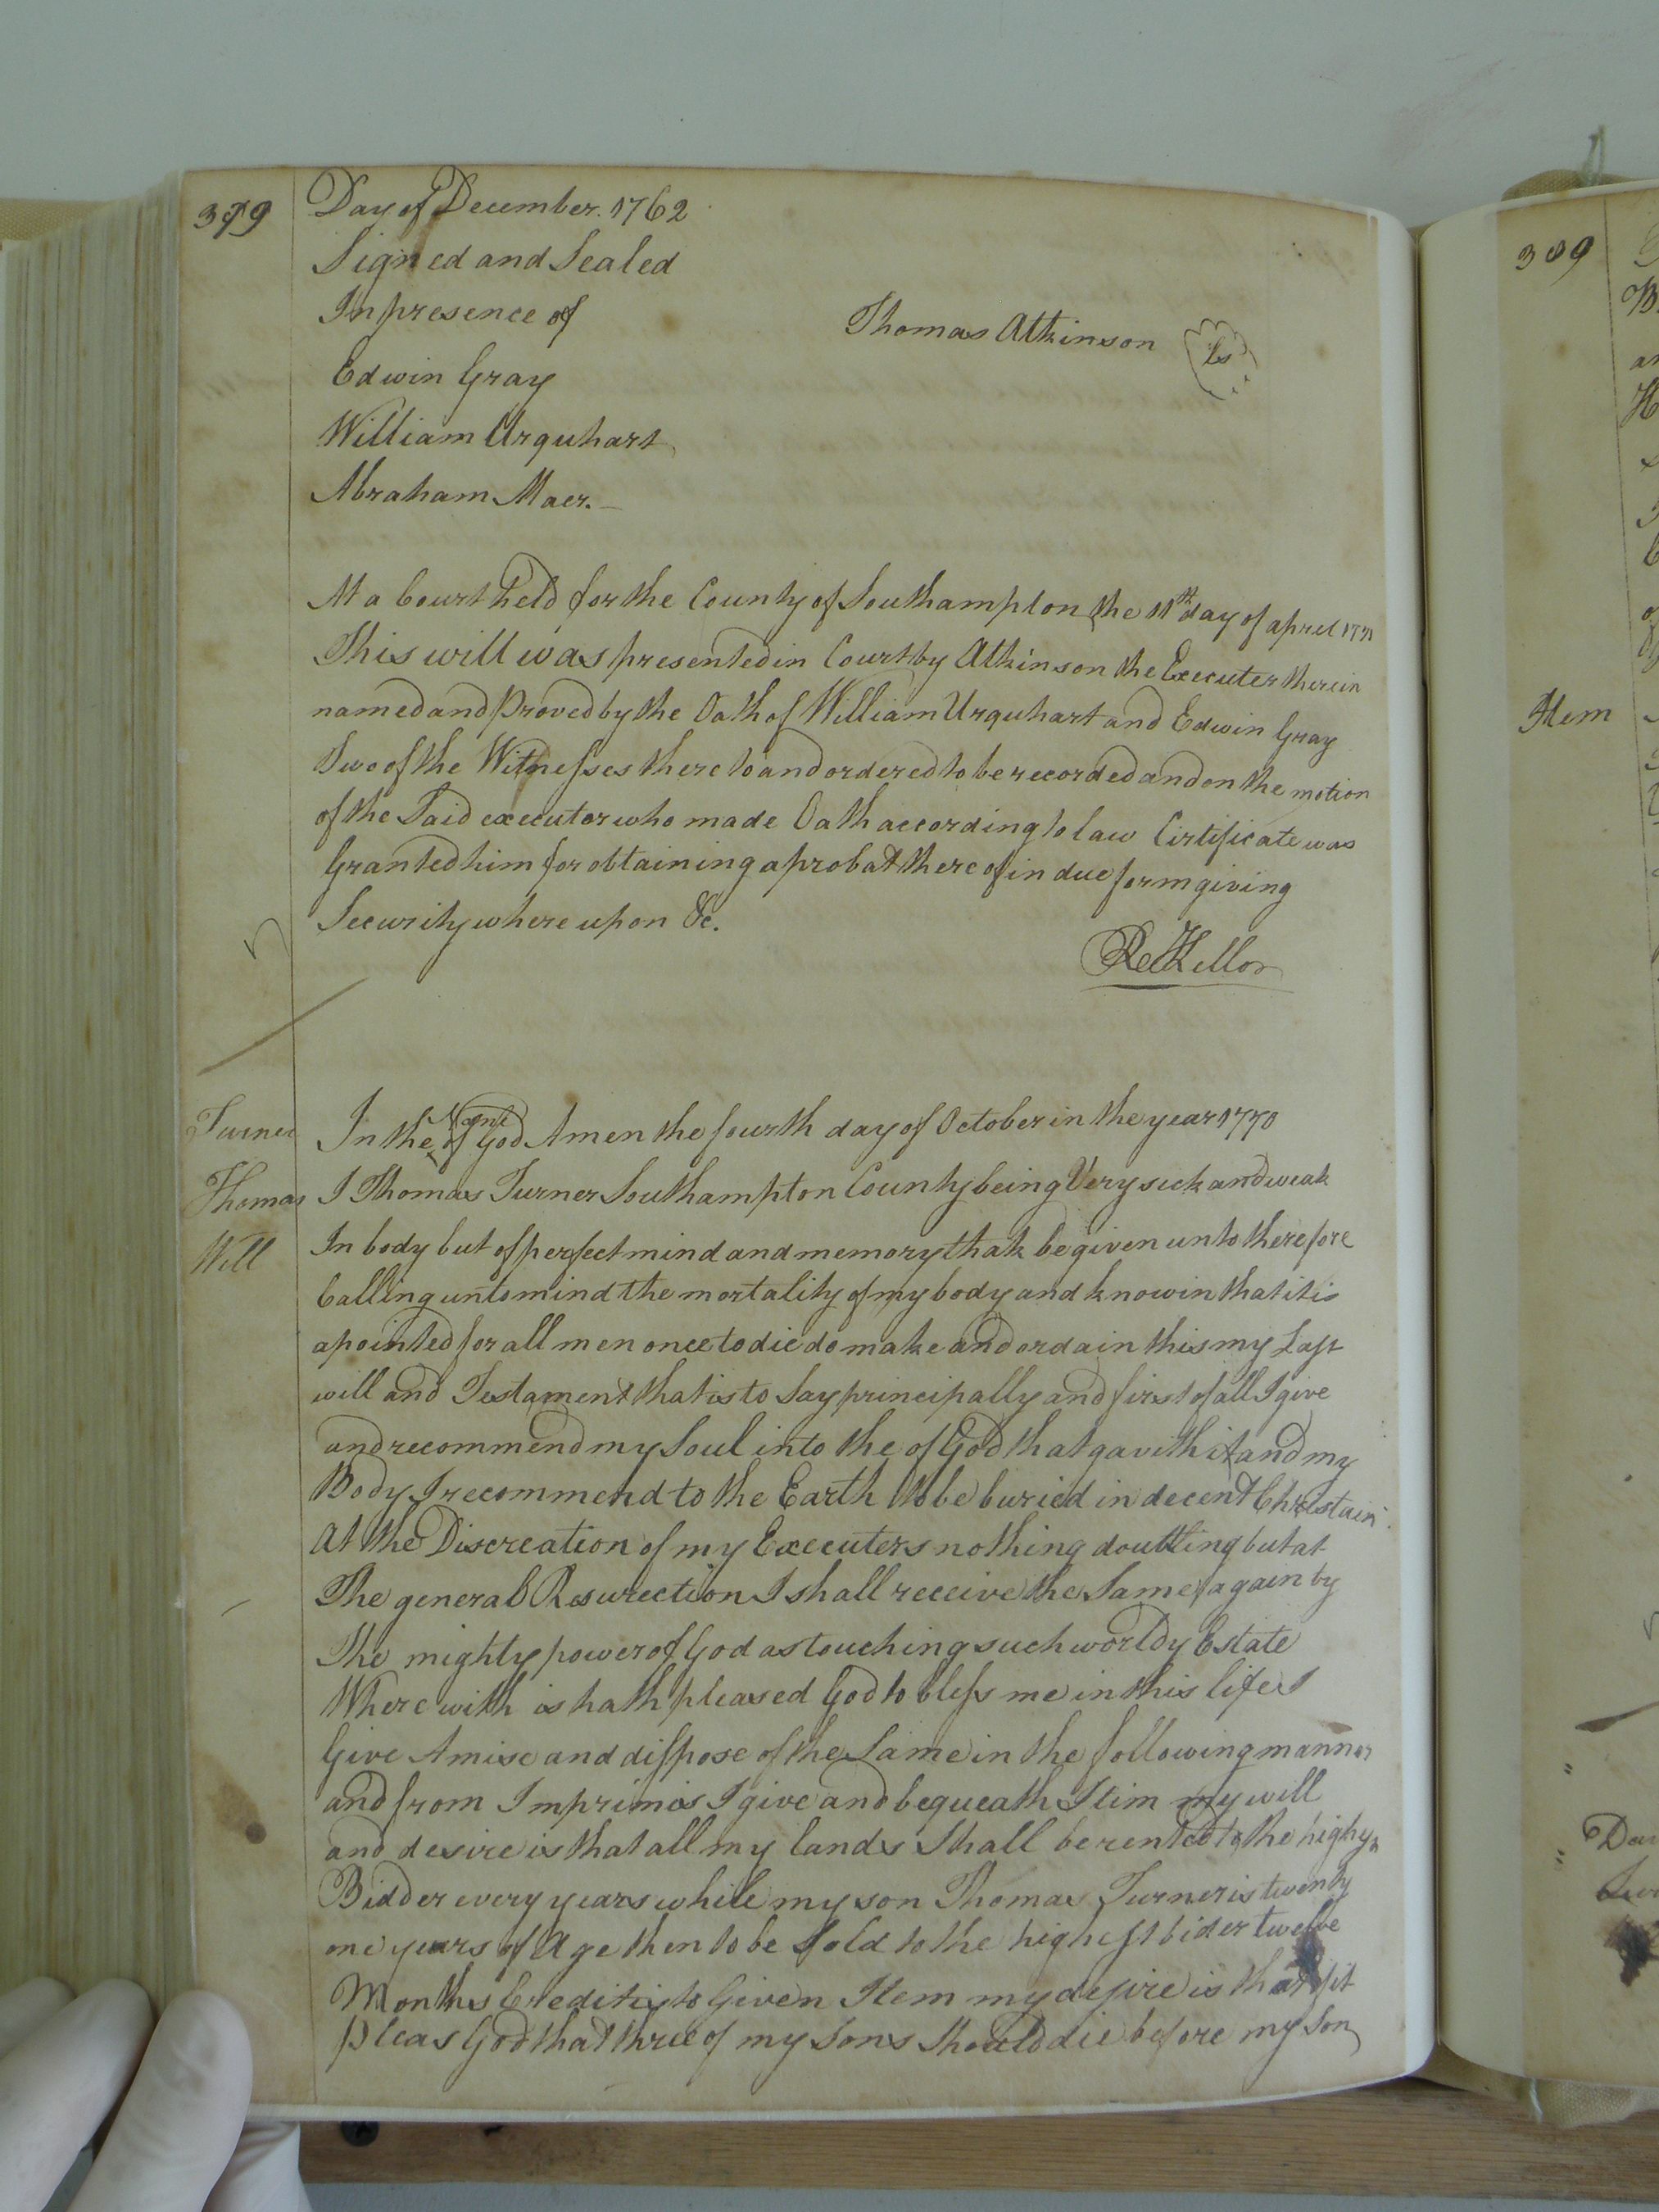 379
Day of December. 1762
Signed and Sealed
In presence of
Thomas Atkinson Ls
Edwin Gray
William Urquhart
Abraham Maer.
At a Court held for the County of Southampton the 11th day of april 1771
This will was presented in Court by Atkinson the Executer therein
named and Proved by the Oath of William Urquhart and Edwin Gray
Two of the Witnesses there to and ordered to be recorded and on the motion
of the Said executor who made Oath according to law Cirtificate was
Granted him for obtaining a probat there of in due form giving
Security where upon &c.
Turner
Thomas
Will
In the Name of God Amen the fourth day of October in the year 1770
I Thomas Turner Southampton County being Very sick and weak
In body but of perfect mind and memory thak be given unto therefore
Calling unto mind the mortality of my body and knowin that it is
apointed for all men once to die do make and ordain this my Last
will and Testament that is to Say principally and first of all I give
and recommend my Soul into the of God that gavith it and my
Body I recommend to the Earth to be buried in decent Christain
At the Discreation of my Executers nothing doutting but at
The general Resurection I shall receive the Same again by
The mighty power of God as touching such worldy Estate
Where with is hath pleased God to bless me in this life I
Give Amise and disspose of the Same in the following manner
and from Imprimis I give and bequeath Itim my will
and desire is that all my lands Shall be rented to the
Bidder every years while my son Thomas Turner is twenty
one years of Age then to be Sold to the highest bider twelve
Months Credit to Given Item my desire is that if it
pleas God that three of my Sons Should die before my Son
389
Item